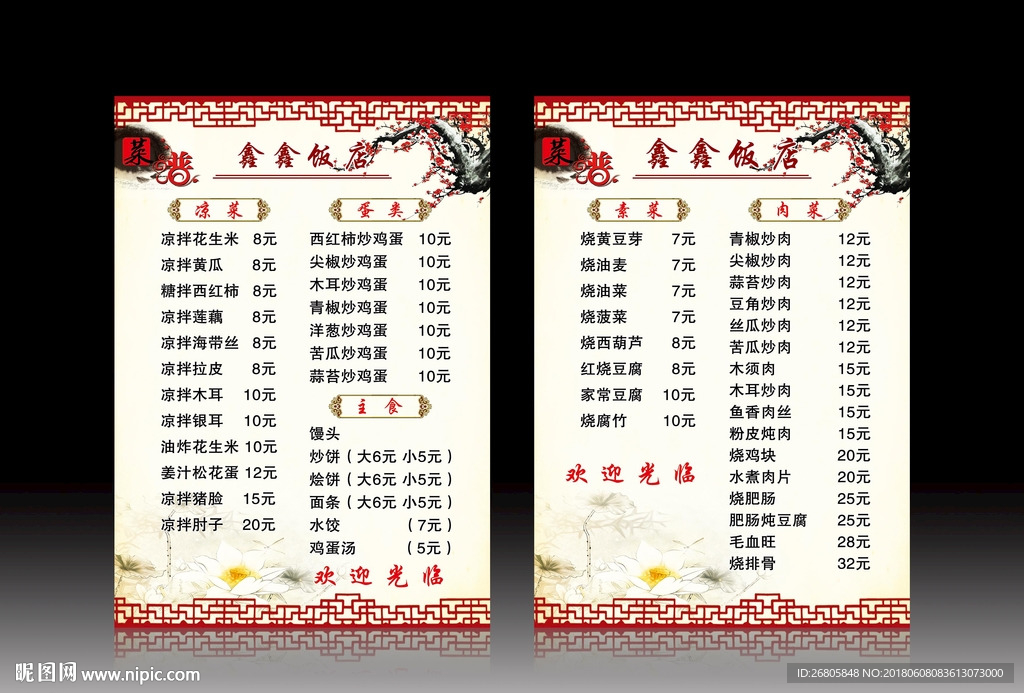 菜谱
鑫鑫饭店
凉菜
凉拌花生米 8元
凉拌黄瓜 8元
糖拌西红柿 8元
凉拌莲藕 8元
凉拌海带丝 8元
凉拌拉皮 8元
凉拌木耳 10元
凉拌银耳 10元
油炸花生米 10元
姜汁松花蛋 12元
凉拌猪脸 15元
凉拌肘子 20元
蛋类
西红柿炒鸡蛋 10元
尖椒炒鸡蛋 10元
木耳炒鸡蛋 10元
青椒炒鸡蛋 10元
洋葱炒鸡蛋 10元
苦瓜炒鸡蛋 10元
蒜苔炒鸡蛋 10元
主食
馒头
炒饼（大6元 小5元）
烩饼（大6元 小5元）
面条（大6元 小5元）
水饺 （7元）
鸡蛋汤 （5元）
欢迎光临
菜谱
鑫鑫饭店
素菜
烧黄豆芽 7元
烧油麦 7元
烧油菜 7元
烧菠菜 7元
烧西葫芦 8元
红烧豆腐 8元
家常豆腐 10元
烧腐竹 10元
欢迎光临
肉菜
青椒炒肉 12元
尖椒炒肉 12元
蒜苔炒肉 12元
豆角炒肉 12元
丝瓜炒肉 12元
苦瓜炒肉 12元
木须肉 15元
木耳炒肉 15元
鱼香肉丝 15元
粉皮炖肉 15元
烧鸡块 20元
水煮肉片 20元
烧肥肠 25元
肥肠炖豆腐 25元
毛血旺 28元
烧排骨 32元
昵图网 www.nipic.com
ID:26805848 NO:20180608083613073000